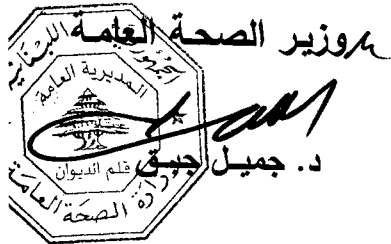 وزير الصحة العامة
د. جميل جبق
الجمهورية اللبنانية
المديرية العامة
قلم الديوان
وزارة الصحة العامة